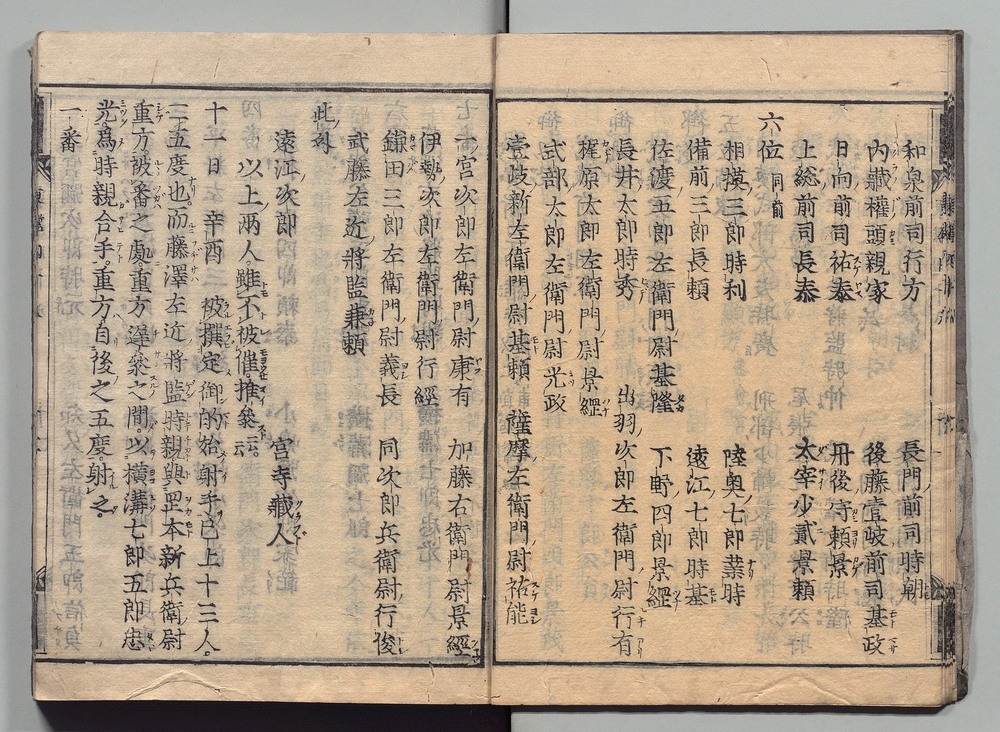 和泉前司行方　長門前司時朝
内藏權頭親家　後藤壹岐前司基政
日向前司祐泰　丹後守頼景
上総前司長泰　太宰少貳景頼
六位 同前
相摸三郎時利　陸奥七郎業時
備前三郎長頼　遠江七郎時基
佐渡五郎左衛門尉基隆　下野四郎景經
長井太郎時秀　出羽次郎左衛門尉行有
梶原太郎左衛門尉景經
式部太郎左衛門尉光政
壹岐新左衛門尉基頼　薩摩左衛門尉祐能
一宮次郎左衛門尉康有　加藤右衛門尉景經
伊勢次郎左衛門尉行經
鎌田三郎左衛門尉義長　同次郎兵衛尉行俊
武藤左近將監兼頼
此外
遠江次郎　宮寺藏人
以上兩人雖不被催推參云云
十一日辛酉被撰定御的始射手已上十三人
三五度也而藤澤左近將監時親與罡本新兵衛尉
重方被番之處重方遅參之間以横溝七郎五郎忠
光爲時親合手重方自後之五度射之
一番